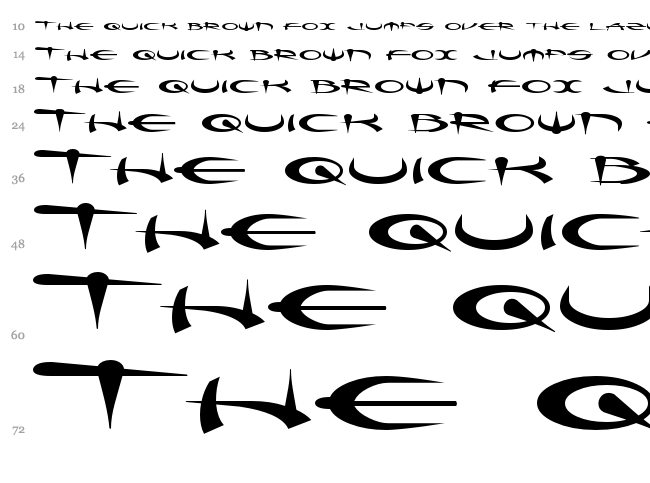 10 THE QUICK BROWN FOX JUMPS OVER THE LAZ
14 THE QUICK BROWN FOX JUMPS OV
18 THE QUICK BROWN FOX JU
24 THE QUICK BROWN
36 THE QUICK B
48 THE QUIC
60 THE QU
72 THE Q